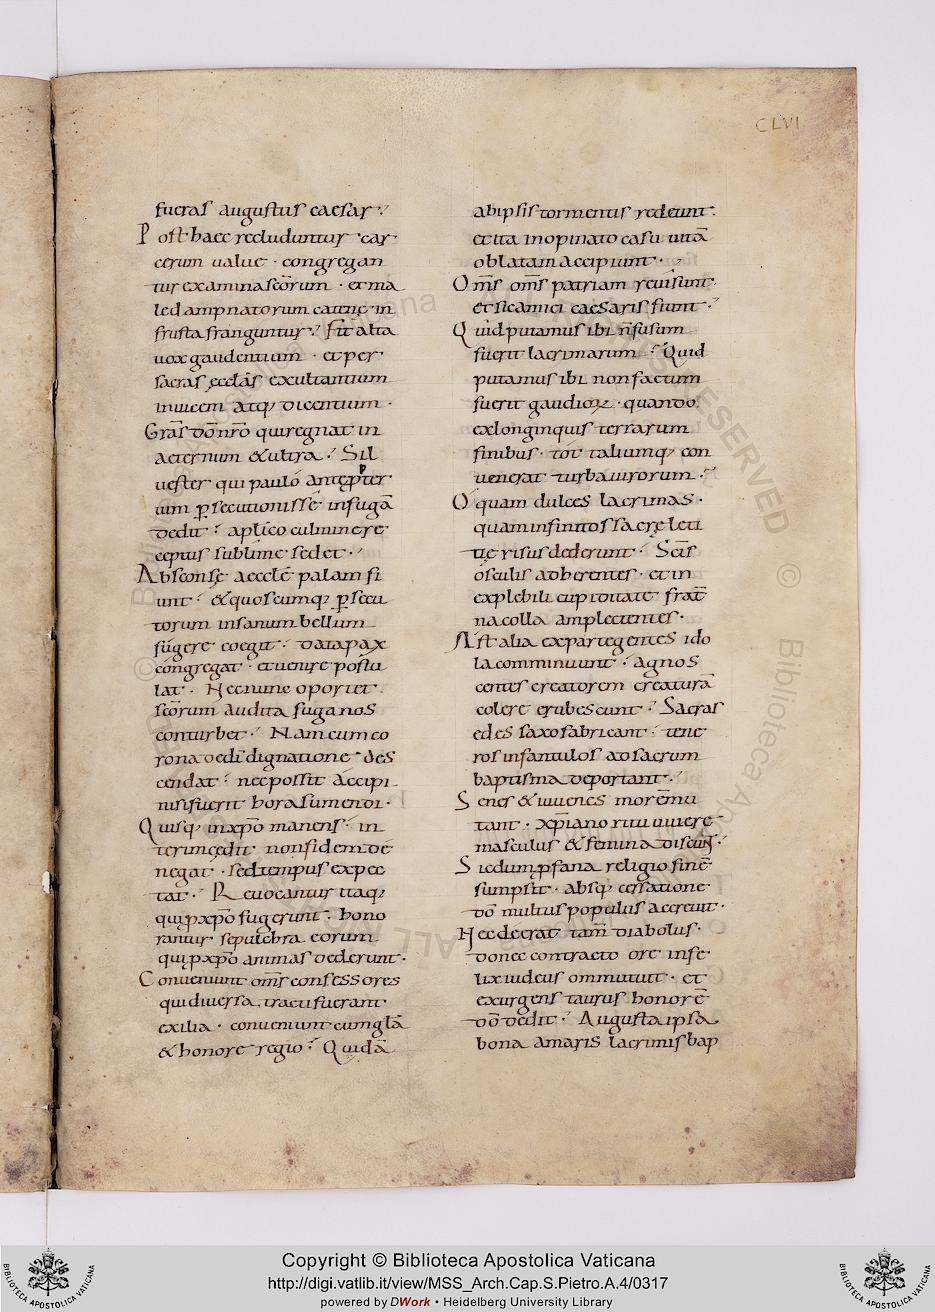 CLVI
fueras augustus caesar.
Post haec recluduntur car
cerum ualue · congregan
tur examina sc̄orum · et ma
le dampnatorum catenę in
frusta franguntur. Fit alta
uox gaudentium · et per
sacras ęcclās exultantium
inuicem atq; dicentium ·
Grās dō nr̄o qui regnat in
aeternum & ultra. Sil
uester qui paulo ante p̄ter
ium p̄secutionis se in fugā
dedit · aplico culmine re
ceptus sublime sedet ·
Absconse aecclē palam fi
unt · & quoscumq; p̄secu
torum insanum bellum
fugere coegit · data pax
congregat · et uenire postu
lat · Nec nunc oportet
sc̄orum audita fuga nos
conturbet · Nam cum co
rona de dī dignatione des
cendat · nec possit accipi
nisi fuerit hora sumendi ·
Quisq; in xp̄o manens · in
terim cedit non fidem de
negat · sed tempus expec
tat · Reuocantur itaq;
qui p xp̄o fugerunt · hono
rantur sepulchra eorum
qui p xp̄o animas dederunt ·
Conueniunt om̄s confessores
qui diuersa tracti fuerant
exilia · conueniunt cum glā
& honore regio · Quidā
ab ipsis tormentis redeunt ·
et ita inopinato casu uitā
oblatam accipiunt ·
Om̄s om̄s patriam reuisunt ·
et sic amici caesaris fiunt ·
Quid putamus ibi n̄ fusum
fuerit lacrimarum · Quid
putamus ibi non factum
fuerit gaudioꝝ · quando
ex longinquis terrarum
finibus · tot taliumq; con
uenerat turba uirorum ·
O quam dulces lacrimas ·
quam infinitos sacrę leti
tię risus dederunt · Scīs
osculis adherentes · et in
explebili cupiditate frat̄
na colla amplectentes ·
Ast alia ex parte gentes ido
la comminuunt · agnos
centes creatorem creaturā
colere erubescunt · Sacras
edes saxo fabricant · tene
ros infantulos ad sacrum
baptisma deportant ·
Senes & iuuenes morē mu
tant · xp̄iano ritu uiuere
masculus & femina discunt ·
Sic dum p̄fana religio finē
sumpsit · absq; cessatione
dō multus populus accreuit ·
Nec deerat tam̄ diabolus ·
donec contracto ore infe
lix iudeus ommutuit · et
exurgens taurus honorē
dō dedit · Augusta ipsa
bona amaris lacrimis bap
Copyright © Biblioteca Apostolica Vaticana
http://digi.vatlib.it/view/MSS_Arch.Cap.S.Pietro.A.4/0317
powered by DWork • Heidelberg University Library